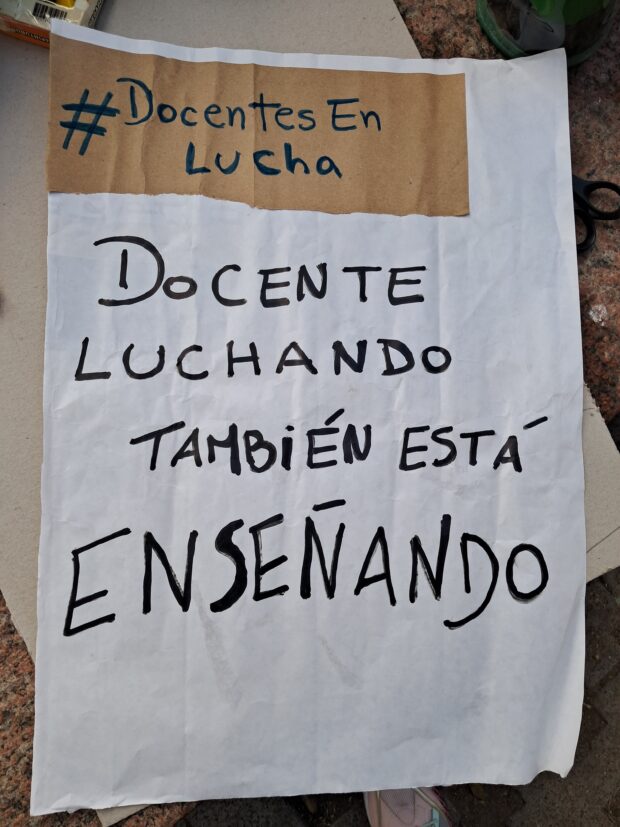 #DocentesEn
Lucha
DOCENTE
LUCHANDO
TAMBIÉN ESTÁ
ENSEÑANDO